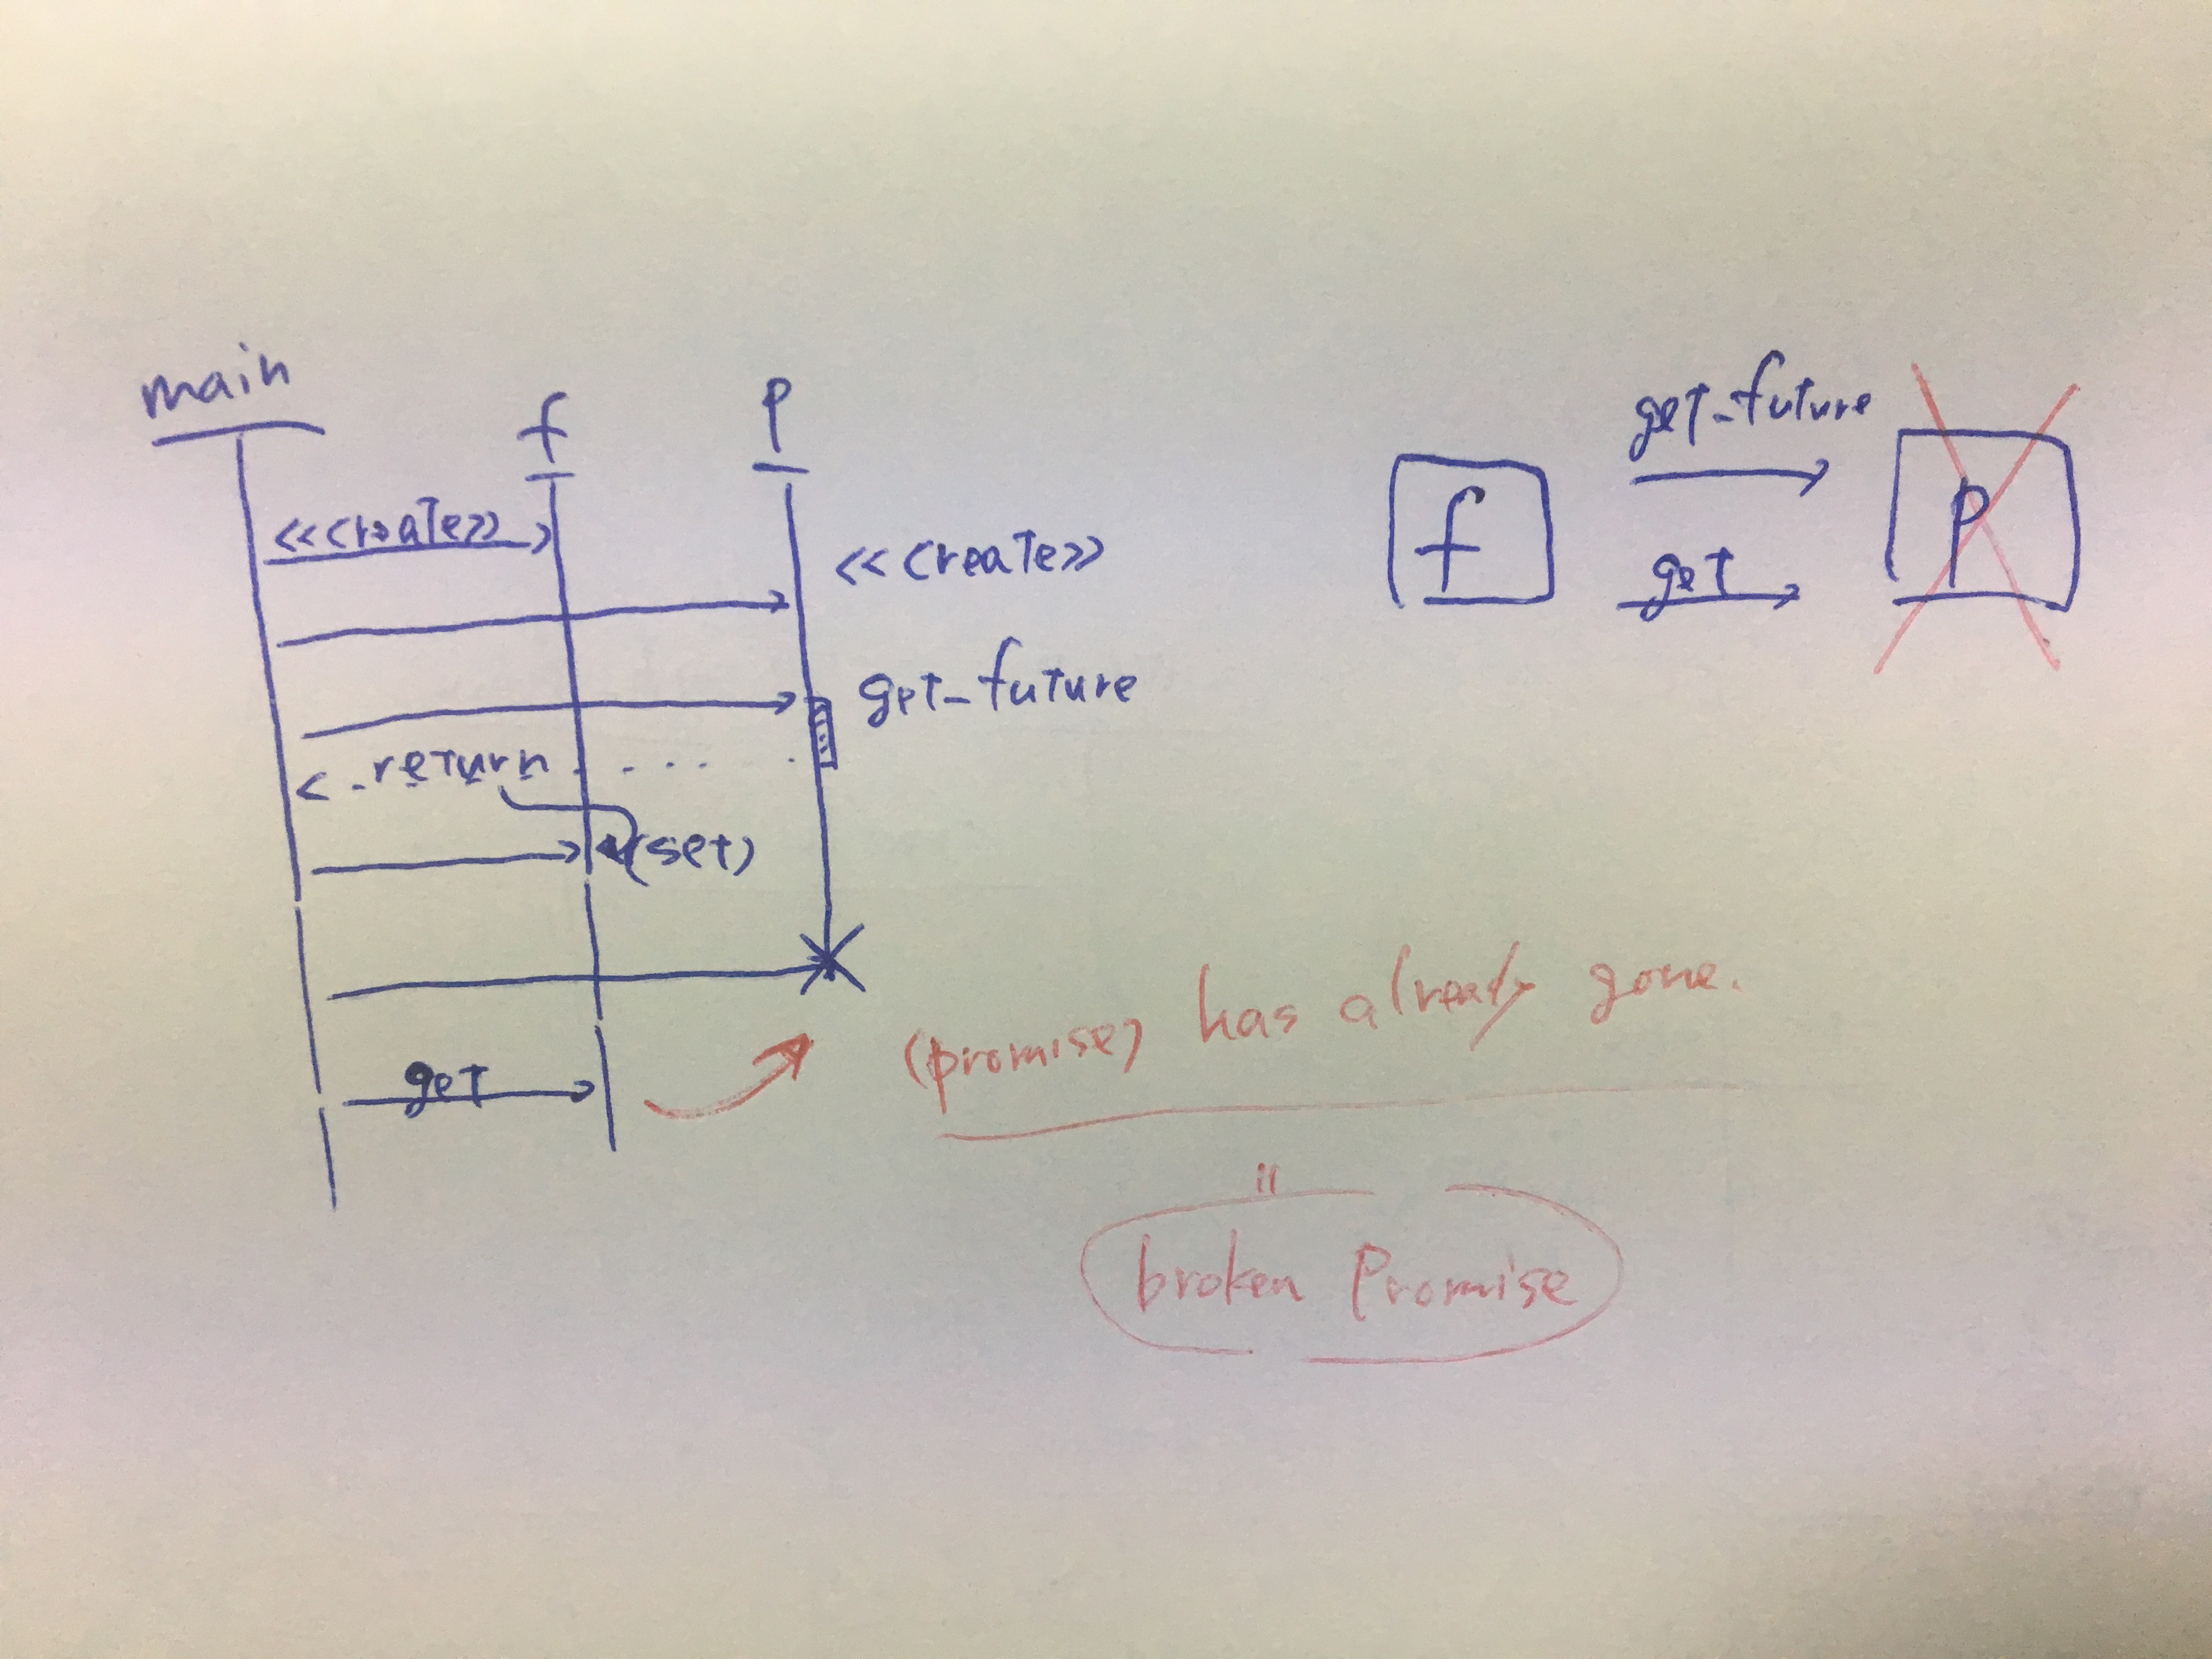 main
f
P
<<create>>
<<create>>
get_future
return
(set)
get
(promise) has already gone.
=
broken Promise
get_future
f
get
P